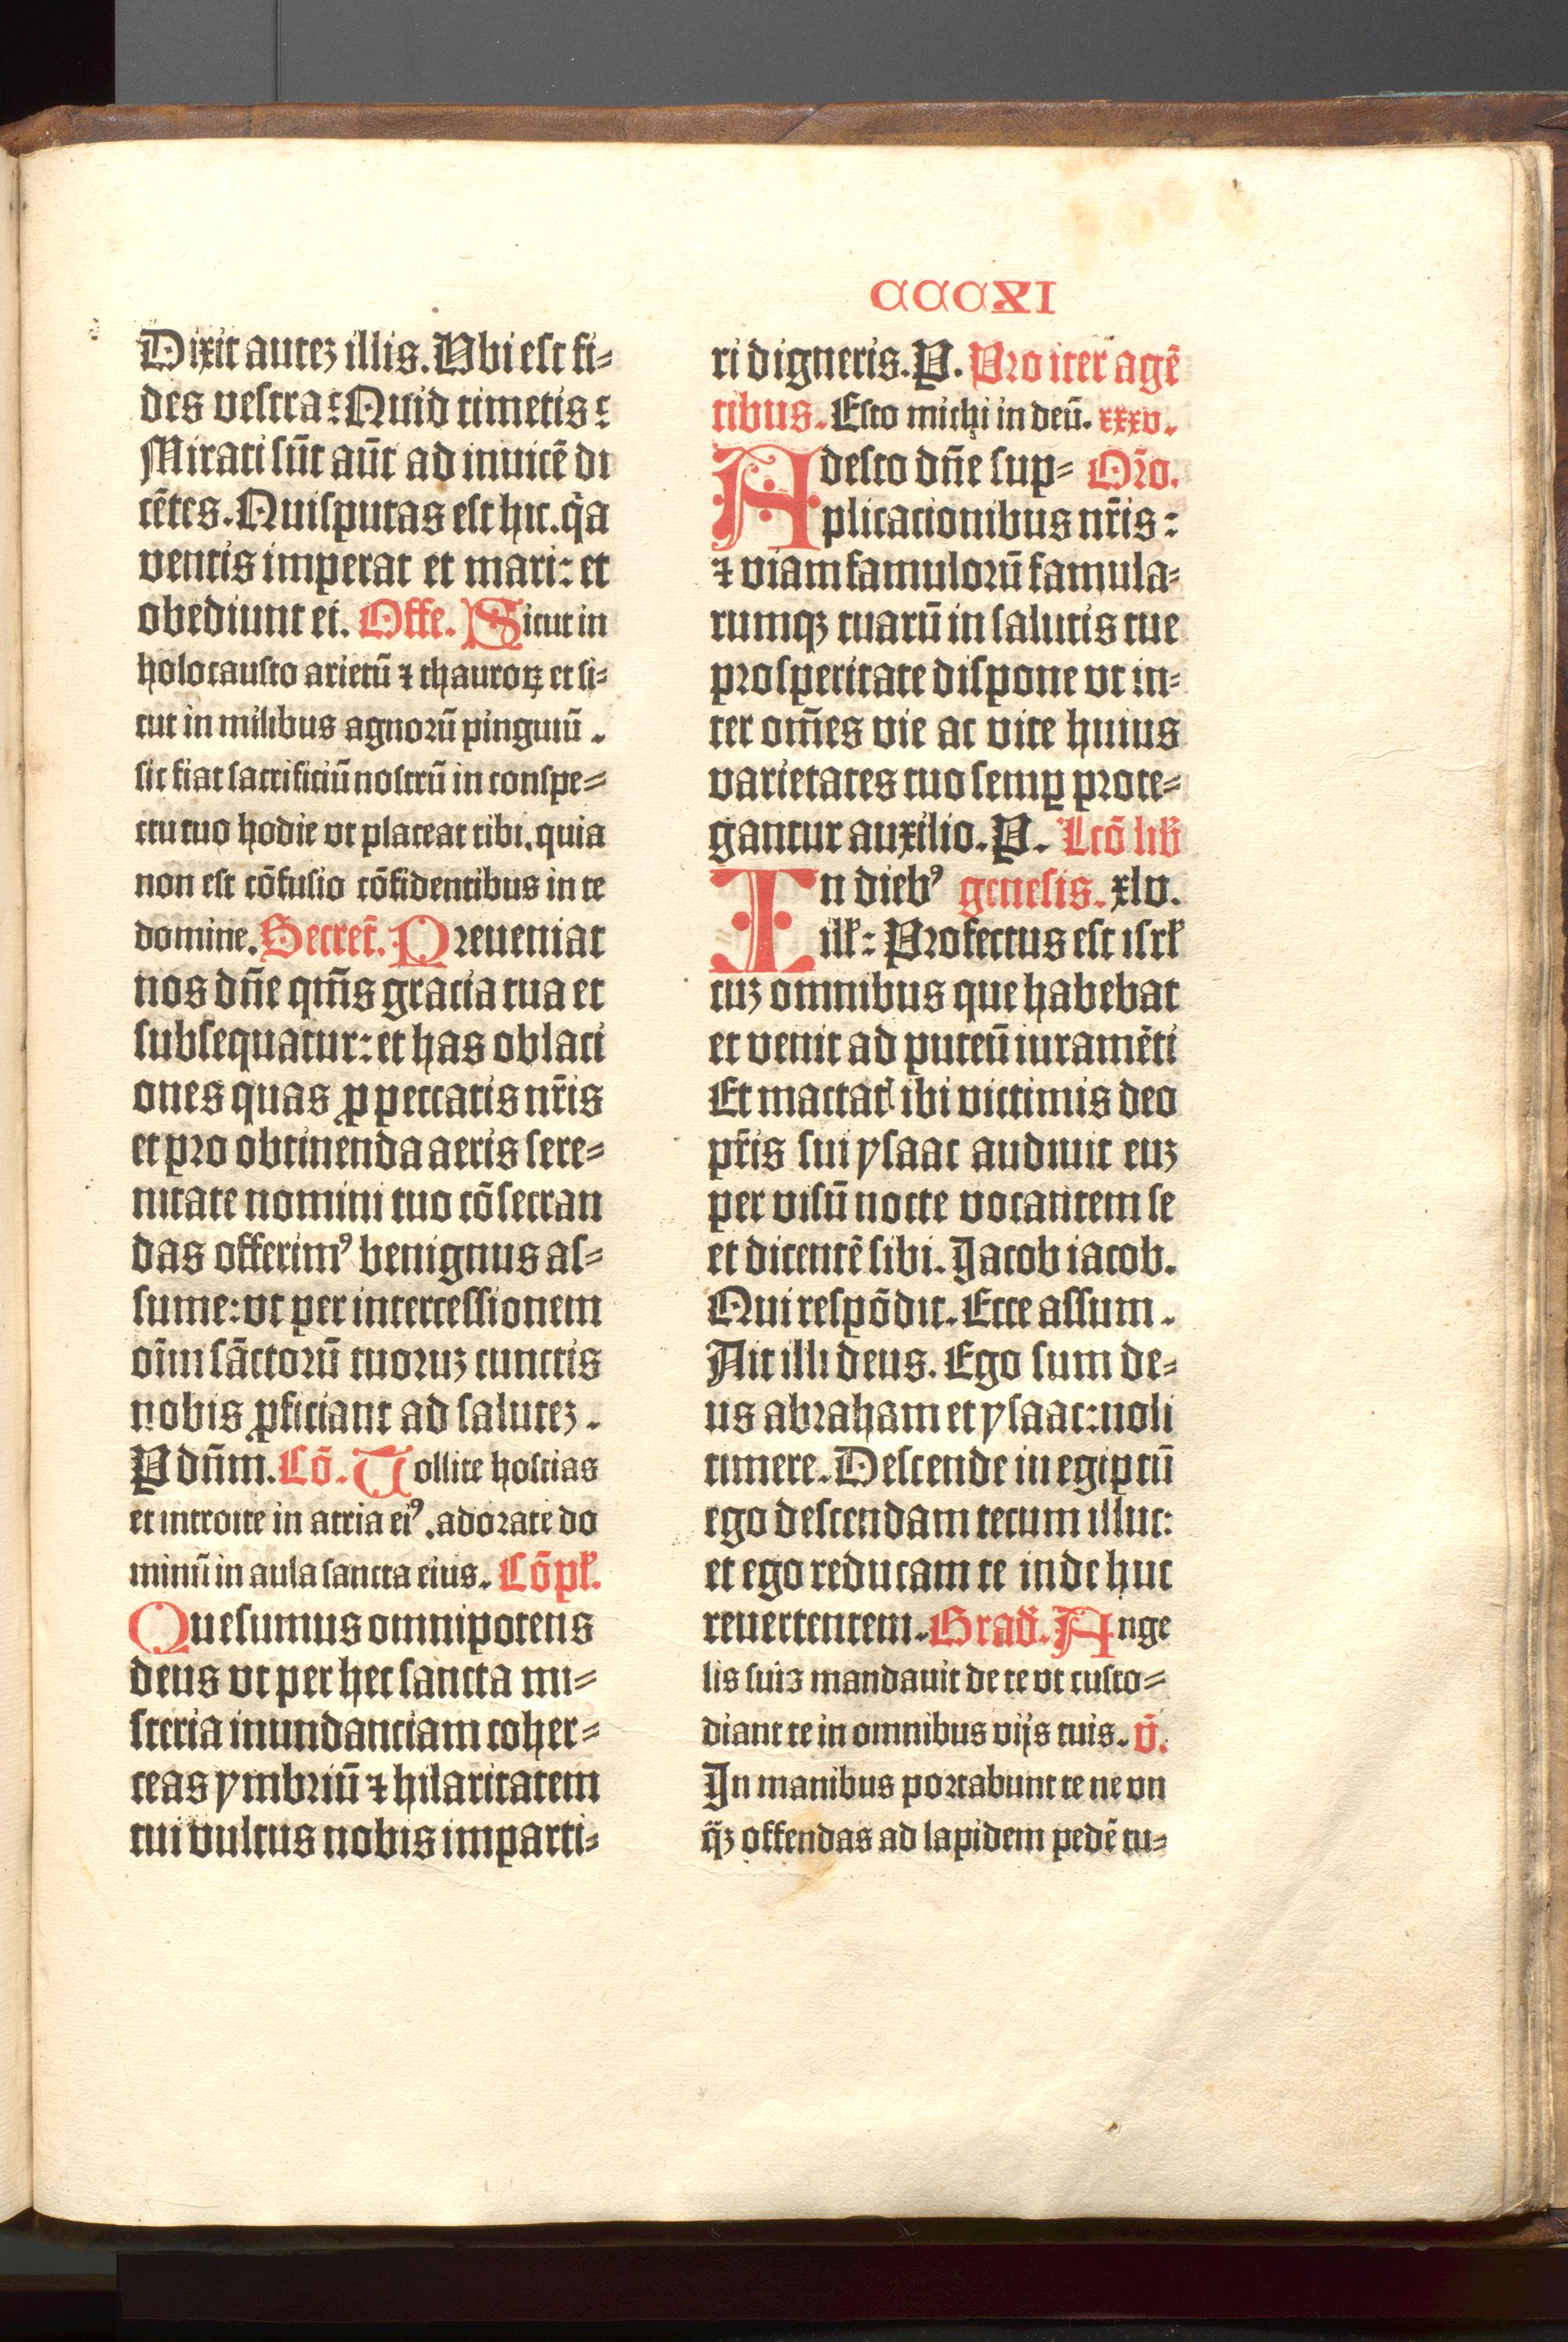 CCCXI
Dixit autez illis. Vbi est fi-
des vestra? Quid timetis?
Mirati sūt aūt ad inuicē di
cētes. Quis putas est hic. q̄a
ventis imperat et mari: et
obediunt ei. Offe. Sicut in
holocausto arietū ⁊ thauroꝝ et si-
cut in milibus agnorū pinguiū.
sic fiat sacrificiū nostrū in conspe-
ctu tuo hodie vt placeat tibi. quia
non est cōfusio cōfidentibus in te
domine. Secret̄. Preueniat
nos dn̄e qm̄s gracia tua et
subsequatur: et has oblaci
ones quas ꝓ peccatis nr̄is
et pro obtinenda aeris sere-
nitate nomini tuo cōsecran
das offerimꝰ benignus as-
sume: vt per intercessionem
oīm sāctorū tuoruz cunctis
nobis ꝓficiant ad salutez.
P dn̄m. Cō. Tollite hostias
et introite in atria eiꝰ. adorate do
minū in aula sancta eius. Cōpl̄.
Quesumus omnipotens
deus vt per hec sancta mi-
steria inundanciam coher-
ceas ymbriū ⁊ hilaritatem
tui vultus nobis imparti-
ri digneris. P. Pro iter agē
tibus. Esto michi in deū. xxxv.
Adesto dn̄e sup- Or̄o.
plicacionibus nr̄is:
⁊ viam famulorū famula-
rumqꝫ tuarū in salutis tue
prosperitate dispone vt in-
ter om̄es vie ac vite huius
varietates tuo semꝑ prote-
gantur auxilio. P. Lcō lib̄
In diebꝰ genesis. xlv.
ill̄: Profectus est isrl̄
cuz omnibus que habebat
et venit ad puteū iuramēti
Et mactat̉ ibi victimis deo
pr̄is sui ysaac audiuit euz
per visū nocte vocantem se
et dicentē sibi. Jacob iacob.
Qui respōdit. Ecce assum.
Ait illi deus. Ego sum de-
us abraham et ysaac: noli
timere. Descende in egiptū
ego descendam tecum illuc:
et ego reducam te inde huc
reuertentem. Grad̄. Ange
lis suis mandauit de te vt custo-
diant te in omnibus vijs tuis. v̄.
In manibus portabunt te ne vn
q̄ꝫ offendas ad lapidem pedē tu-